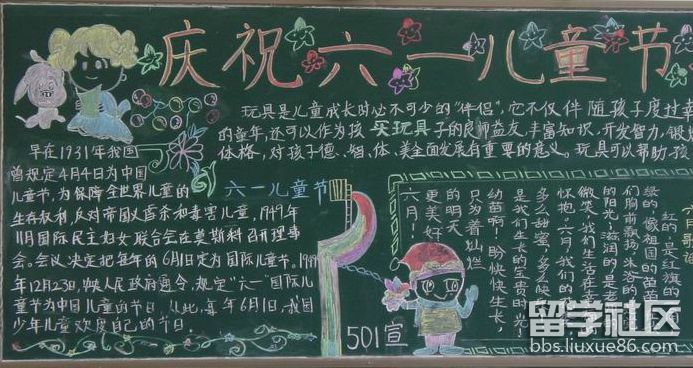 庆祝六一儿童节
玩具是儿童成长时必不可少的"伴侣",它不仅伴随孩子度过幸
的童年,还可以作为孩 买玩具 子的良师益友,丰富知识,开发智力,锻
体格,对孩子德、智、体、美全面发展有重要的意义。玩具可以帮助孩
早在1931年我国
曾规定4月4日为中国
儿童节,为保障全世界儿童的
生存权利,反对帝国主虐杀和毒害儿童,1949年
11月国际民主妇女联合会在莫斯科召开理事
会。会议决定把每年的6月1日定为国际儿童节。1949
年12月23日,中央人民政府通令,规定"六一"国际儿
童节为中国儿童的节日,从此,每年6月1日,我国
少年儿童欢度自己的节日。
六一儿童节
红的是红旗的
绿的像祖国的苗苗
们胸前飘扬
的阳光,滋润的是老
微笑,我们生活在
怀抱,六月,我们的
多么甜蜜,多么
是我们生长的宝贵时光
幼苗啊,盼快快生长,
只为着灿烂
的明天
更美好
六月!
501宣
留学社区
bbs.liuxue86.com